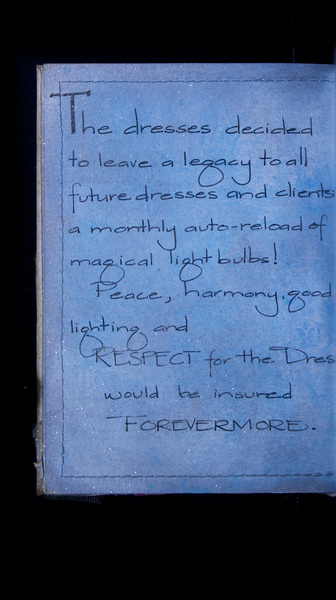 The dresses decided
to leave a legacy to all
future dresses and clients
a monthly auto-reload of
magical light bulbs!
Peace, harmony, good
lighting and
RESPECT for the Dres
would be insured
FOREVERMORE.